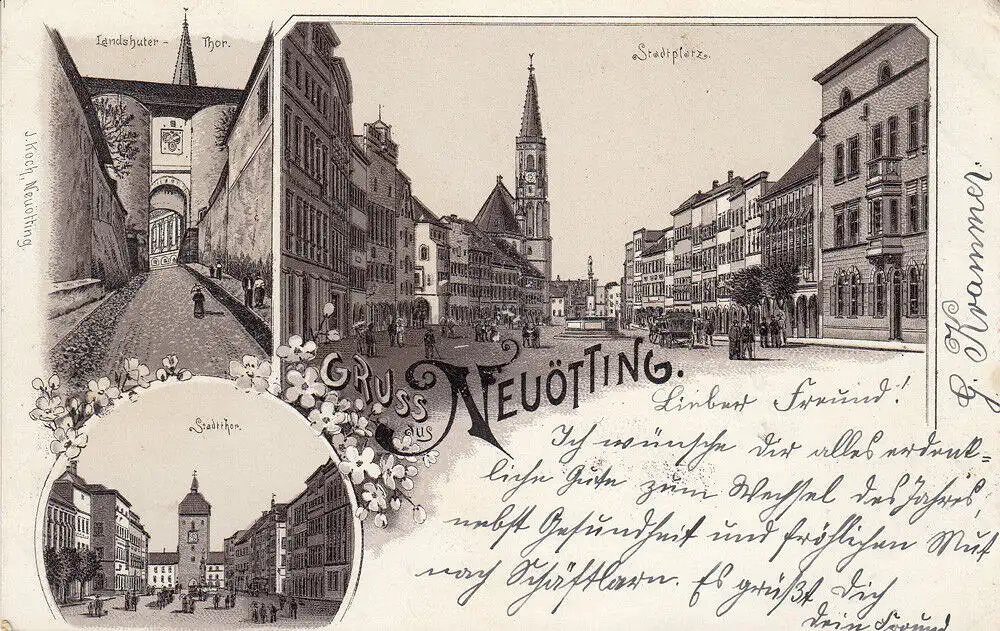 Landshuter - Thor.
Stadtplatz.
J. Koch, Neuötting.
Gruss aus Neuötting.
Stadtthor.
Lieber Freund!
Ich wünsche Dir alles erdenk=
liche Gute zum Wechsel des Jahres,
nebst Gesundheit und fröhlichen Mut
nach Schäftlarn. Es grüßt Dich
dein Freund